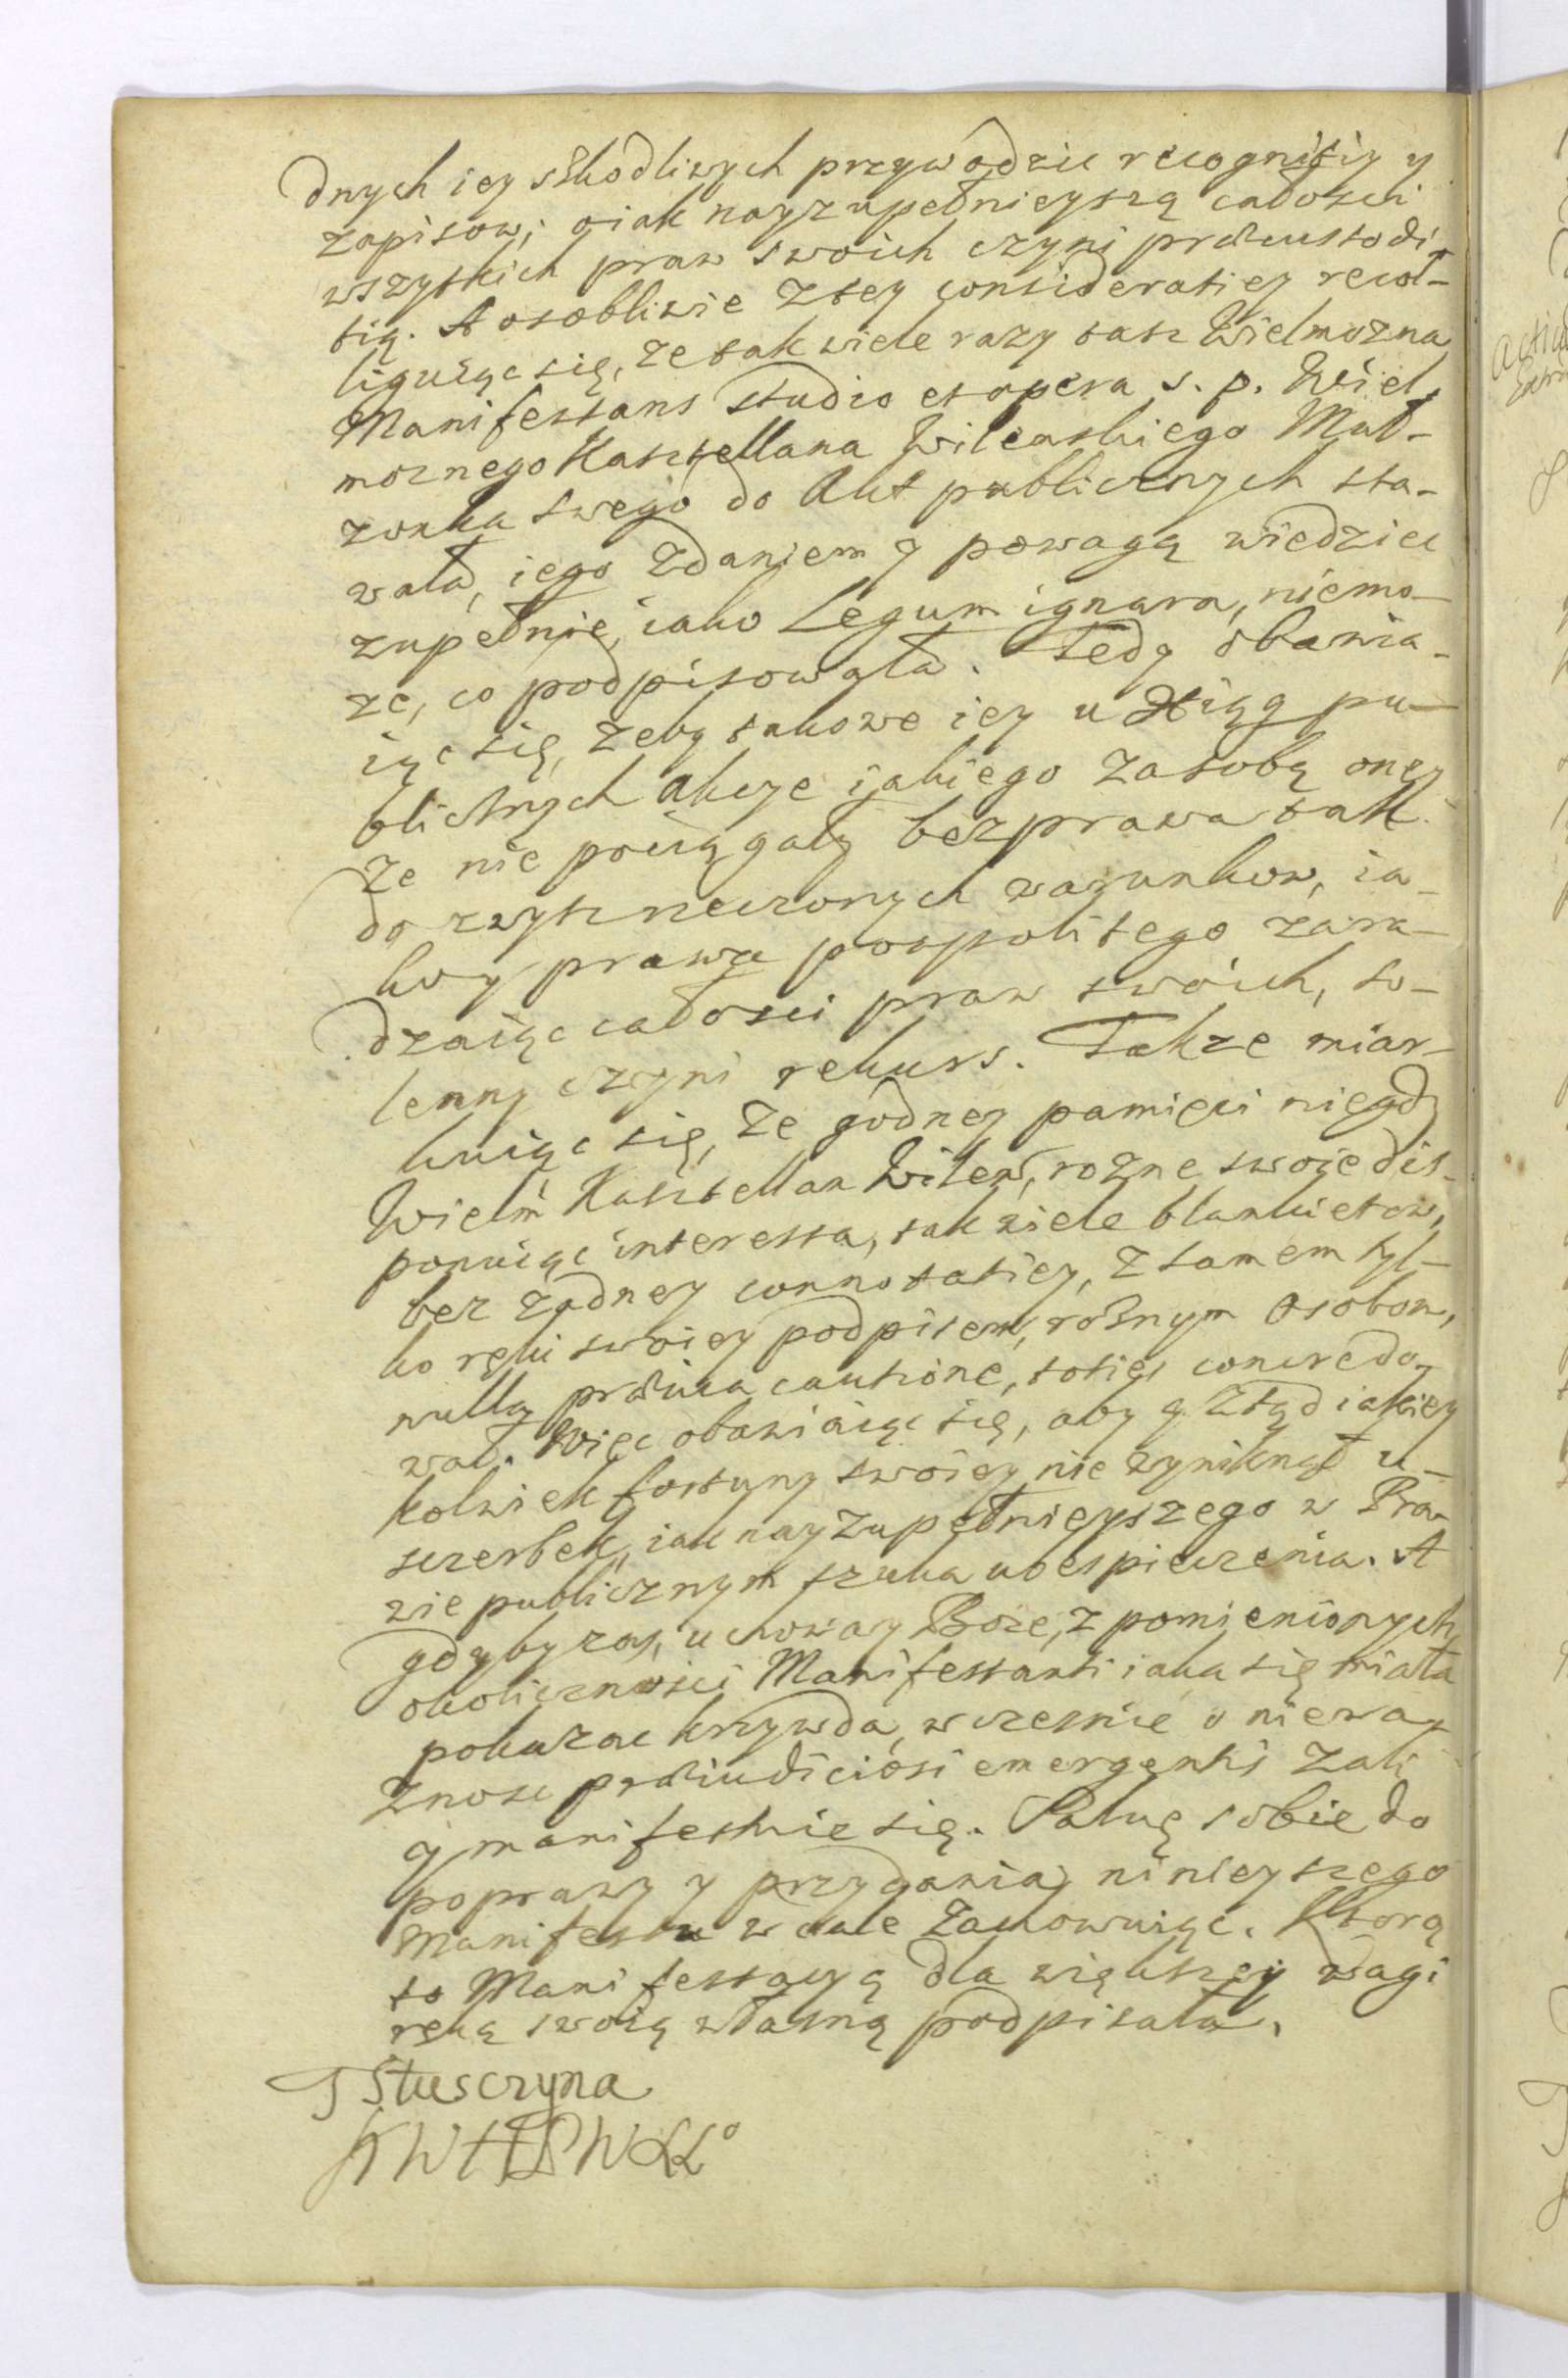 dnych iey szkodliwych przywodzic recognicij y
zapisow; o iak nayzupełnieyszą całosci
wszytkich praw swoich czyni præcustodi-
tię. A osobliwie z tey consideratiey recol-
liguiąc się, że tak wiele razy taż Wielmożna
Manifestans studio et opera s. p. Wiel-
możnego Kasztellana Wilenskiego Mał-
żonka swego do Akt publicznych sta-
wała, iego zdaniem y powagą wiedziec
zupełnie, iako Legum ignara, niemo-
że, co podpisowała. Tedy obawia-
iąc się, żeby takowe iey u Xiąg pu-
blicznych akcye iakiego za sobą oney
że nie pociągały bezprawa tak
do zwysz rzeczonych warunkow, ia-
ko y prawa pospolitego zara-
dzaiąc całosci praw swoich, so-
lenny czyni rekurs. Także miar-
kuiąc się, że godney pamięci niegdy
Wielm Kasztellan Wilen, rożne swoie dis-
ponuiąc interessa, tak wiele blankietow,
bez żadney connotatiey, z samem tyl-
ko ręki swoiey podpisem, rożnym osobom,
nulla prævia cautione, toties concredo-
wał. Więc obawiaiąc się, aby y ztąd iakiey
kolwiek fortuny swoiey nie wyniknął u-
szczerbek, iak nayzupełnieyszego w Pra-
wie publicznym szuka ubespieczenia. A
gdyby zas, uchoway Boże, z pomienionych
okolicznosci Manifestanti iaka się miała
pokazac krzywda, wczesnie o niewa-
żnosc præiudiciosi emergentis żali
y manifestuie się. Salwę sobie do
poprawy y przydania ninieyszego
Manifestu w cale zachowuiąc. Ktorą
to Manifestacyą dla większey wagi
ręką swoią własną podpisała.
T Słusczyna